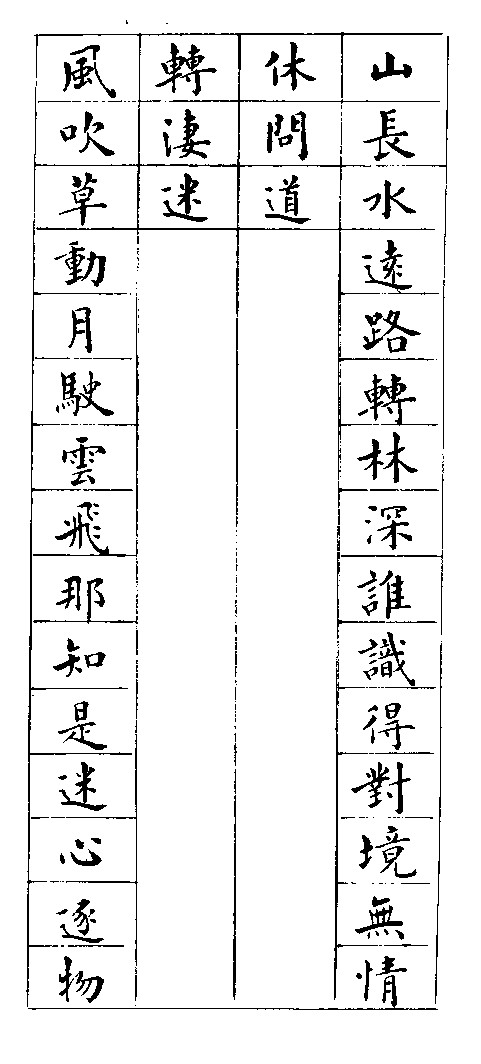 山長水遠路轉林深誰識得對境無情
休問道
轉淒迷
風吹草動月駛雲飛那知是迷心逐物